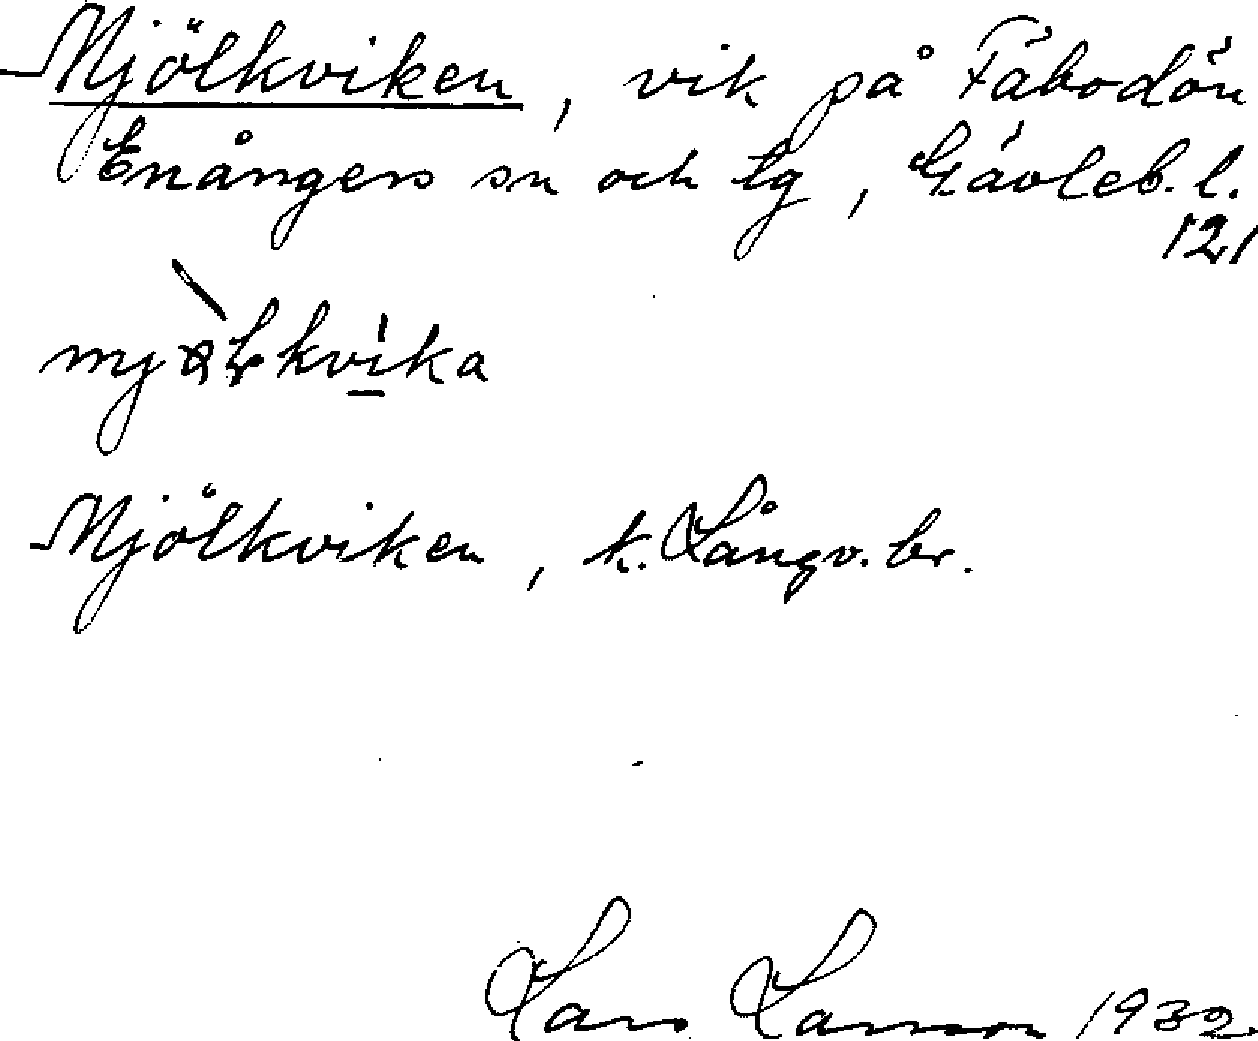 Mjölkviken, vik på Fäbodön
Enångers sn och tg, Gävleb. l.
121
Mjölkviken, k. Långv. br.
Lars Larsson 1932